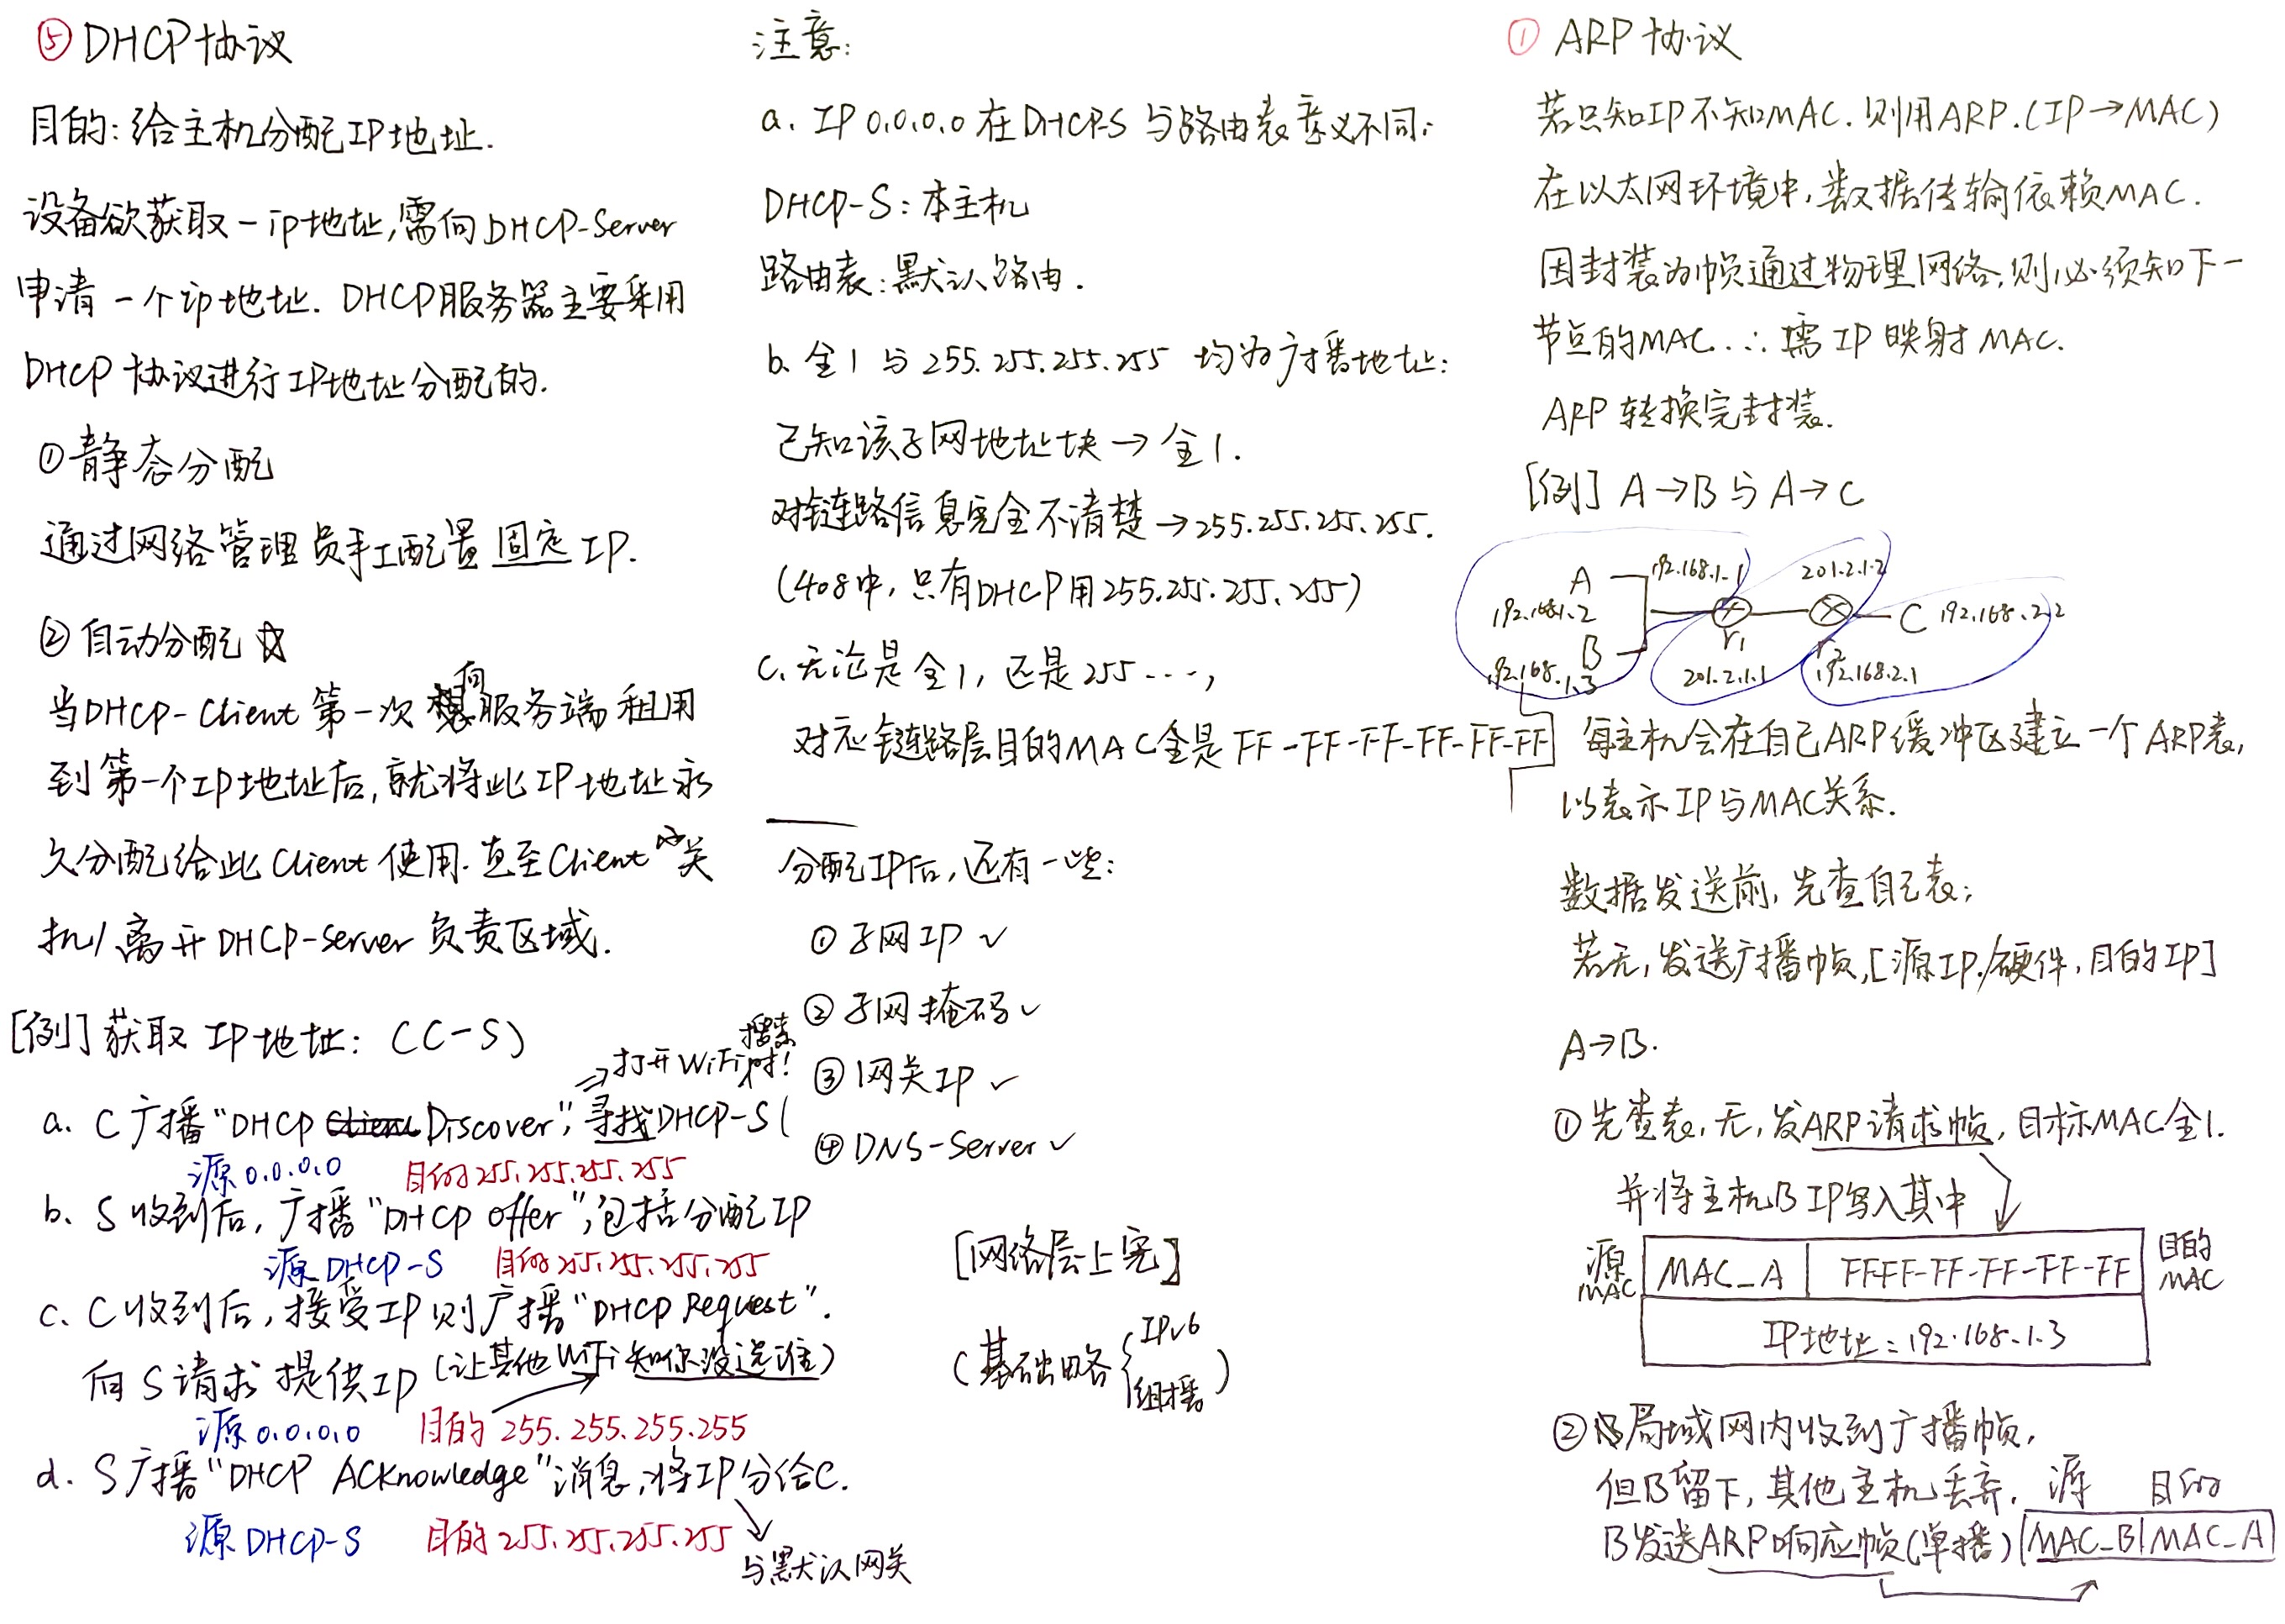 ⑤ DHCP协议
目的: 给主机分配IP地址.
设备欲获取一ip地址,需向DHCP-Server
申请一个ip地址. DHCP服务器主要采用
DHCP协议进行IP地址分配的.
①静态分配
通过网络管理员手工配置固定IP.
②自动分配 ☆
当DHCP-Client第一次向服务端租用
到第一个IP地址后,就将此IP地址永
久分配给此Client使用.直至Client关
机/离开DHCP-Server负责区域.
[例]获取IP地址: (C-S)
⇒打开WiFi搜索时!
a. C广播“DHCP Discover”,寻找DHCP-S(
源0.0.0.0 目的255.255.255.255
b. S收到后,广播“DHCP Offer”,包括分配IP
源DHCP-S 目的255.255.255.255
c. C收到后,接受IP则广播“DHCP Request”.
向S请求提供IP(让其他WiFi知你没选谁)
源0.0.0.0 目的255.255.255.255
d. S广播“DHCP ACKnowledge”消息,将IP分给C.
源DHCP-S 目的255.255.255.255
与默认网关
注意:
a. IP 0.0.0.0在DHCP-S与路由表意义不同:
DHCP-S: 本主机
路由表: 默认路由.
b. 全1与255.255.255.255 均为广播地址:
已知该子网地址块→全1.
对链路信息完全不清楚→255.255.255.255.
(408中, 只有DHCP用255.255.255.255)
c. 无论是全1, 还是255...,
对应链路层目的MAC全是FF-FF-FF-FF-FF-FF
分配IP后,还有一些:
①子网IP ✓
②子网掩码 ✓
③网关IP ✓
④DNS-Server ✓
[网络层上完]
(基础略{IPv6
组播)
① ARP协议
若只知IP不知MAC.则用ARP.(IP→MAC)
在以太网环境中,数据传输依赖MAC.
因封装为帧通过物理网络,则必须知下一
节点的MAC.∴需IP映射MAC.
ARP转换完封装.
[例] A→B与A→C
A 192.168.1.1 201.2.1.2
192.168.1.2 C 192.168.2.2
B r1 r2
192.168.1.3 201.2.1.1 192.168.2.1
每主机会在自己ARP缓冲区建立一个ARP表,
以表示IP与MAC关系.
数据发送前,先查自己表;
若无,发送广播帧,[源IP/硬件,目的IP]
A→B.
①先查表,无,发ARP请求帧,目标MAC全1.
并将主机B IP写入其中
源MAC MAC_A FFFF-FF-FF-FF-FF 目的MAC
IP地址=192.168.1.3
②局域网内收到广播帧,
但B留下,其他主机丢弃. 源 目的
B发送ARP响应帧(单播) MAC_B MAC_A